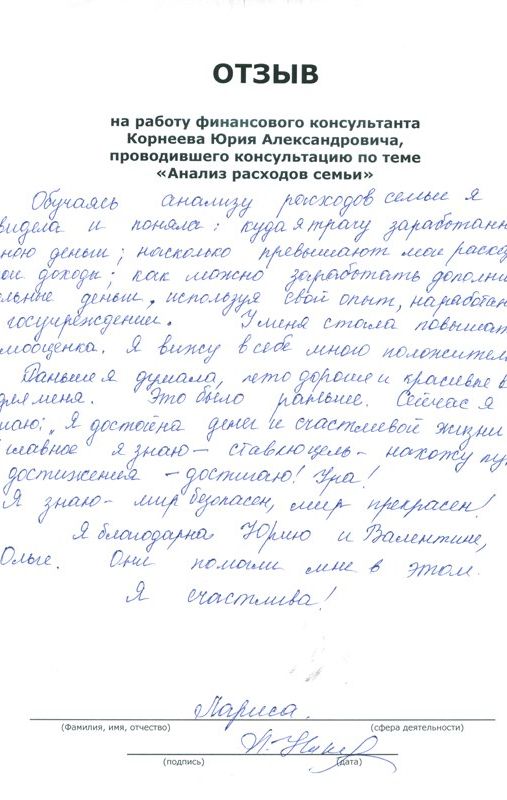 ОТЗЫВ
на работу финансового консультанта
Корнеева Юрия Александровича,
проводившего консультацию по теме
«Анализ расходов семьи»
Обучаясь анализу расходов семьи я
видела и поняла: куда я трачу заработанн
ною деньги; насколько превышают мои расход
ои доходы; как можно заработать дополни
ельные деньги, используя свой опыт, наработан
госучреждении. У меня стала повышат
мооценка. Я вижу в себе много положител
Раньше я думала, что дорогие и красивые в
для меня. Это было раньше. Сейчас я
наю: "Я достойна денег и счастливой жизни
главное я знаю - ставлю цель - нахожу пу
достижения - достигаю! Ура!
Я знаю - мир безопасен, мир прекрасен!
Я благодарна Юрию и Валентине,
Ольге. Они помогли мне в этом.
Я счастлива!
Лариса.
(Фамилия, имя, отчество) (сфера деятельности)
(подпись) (дата)